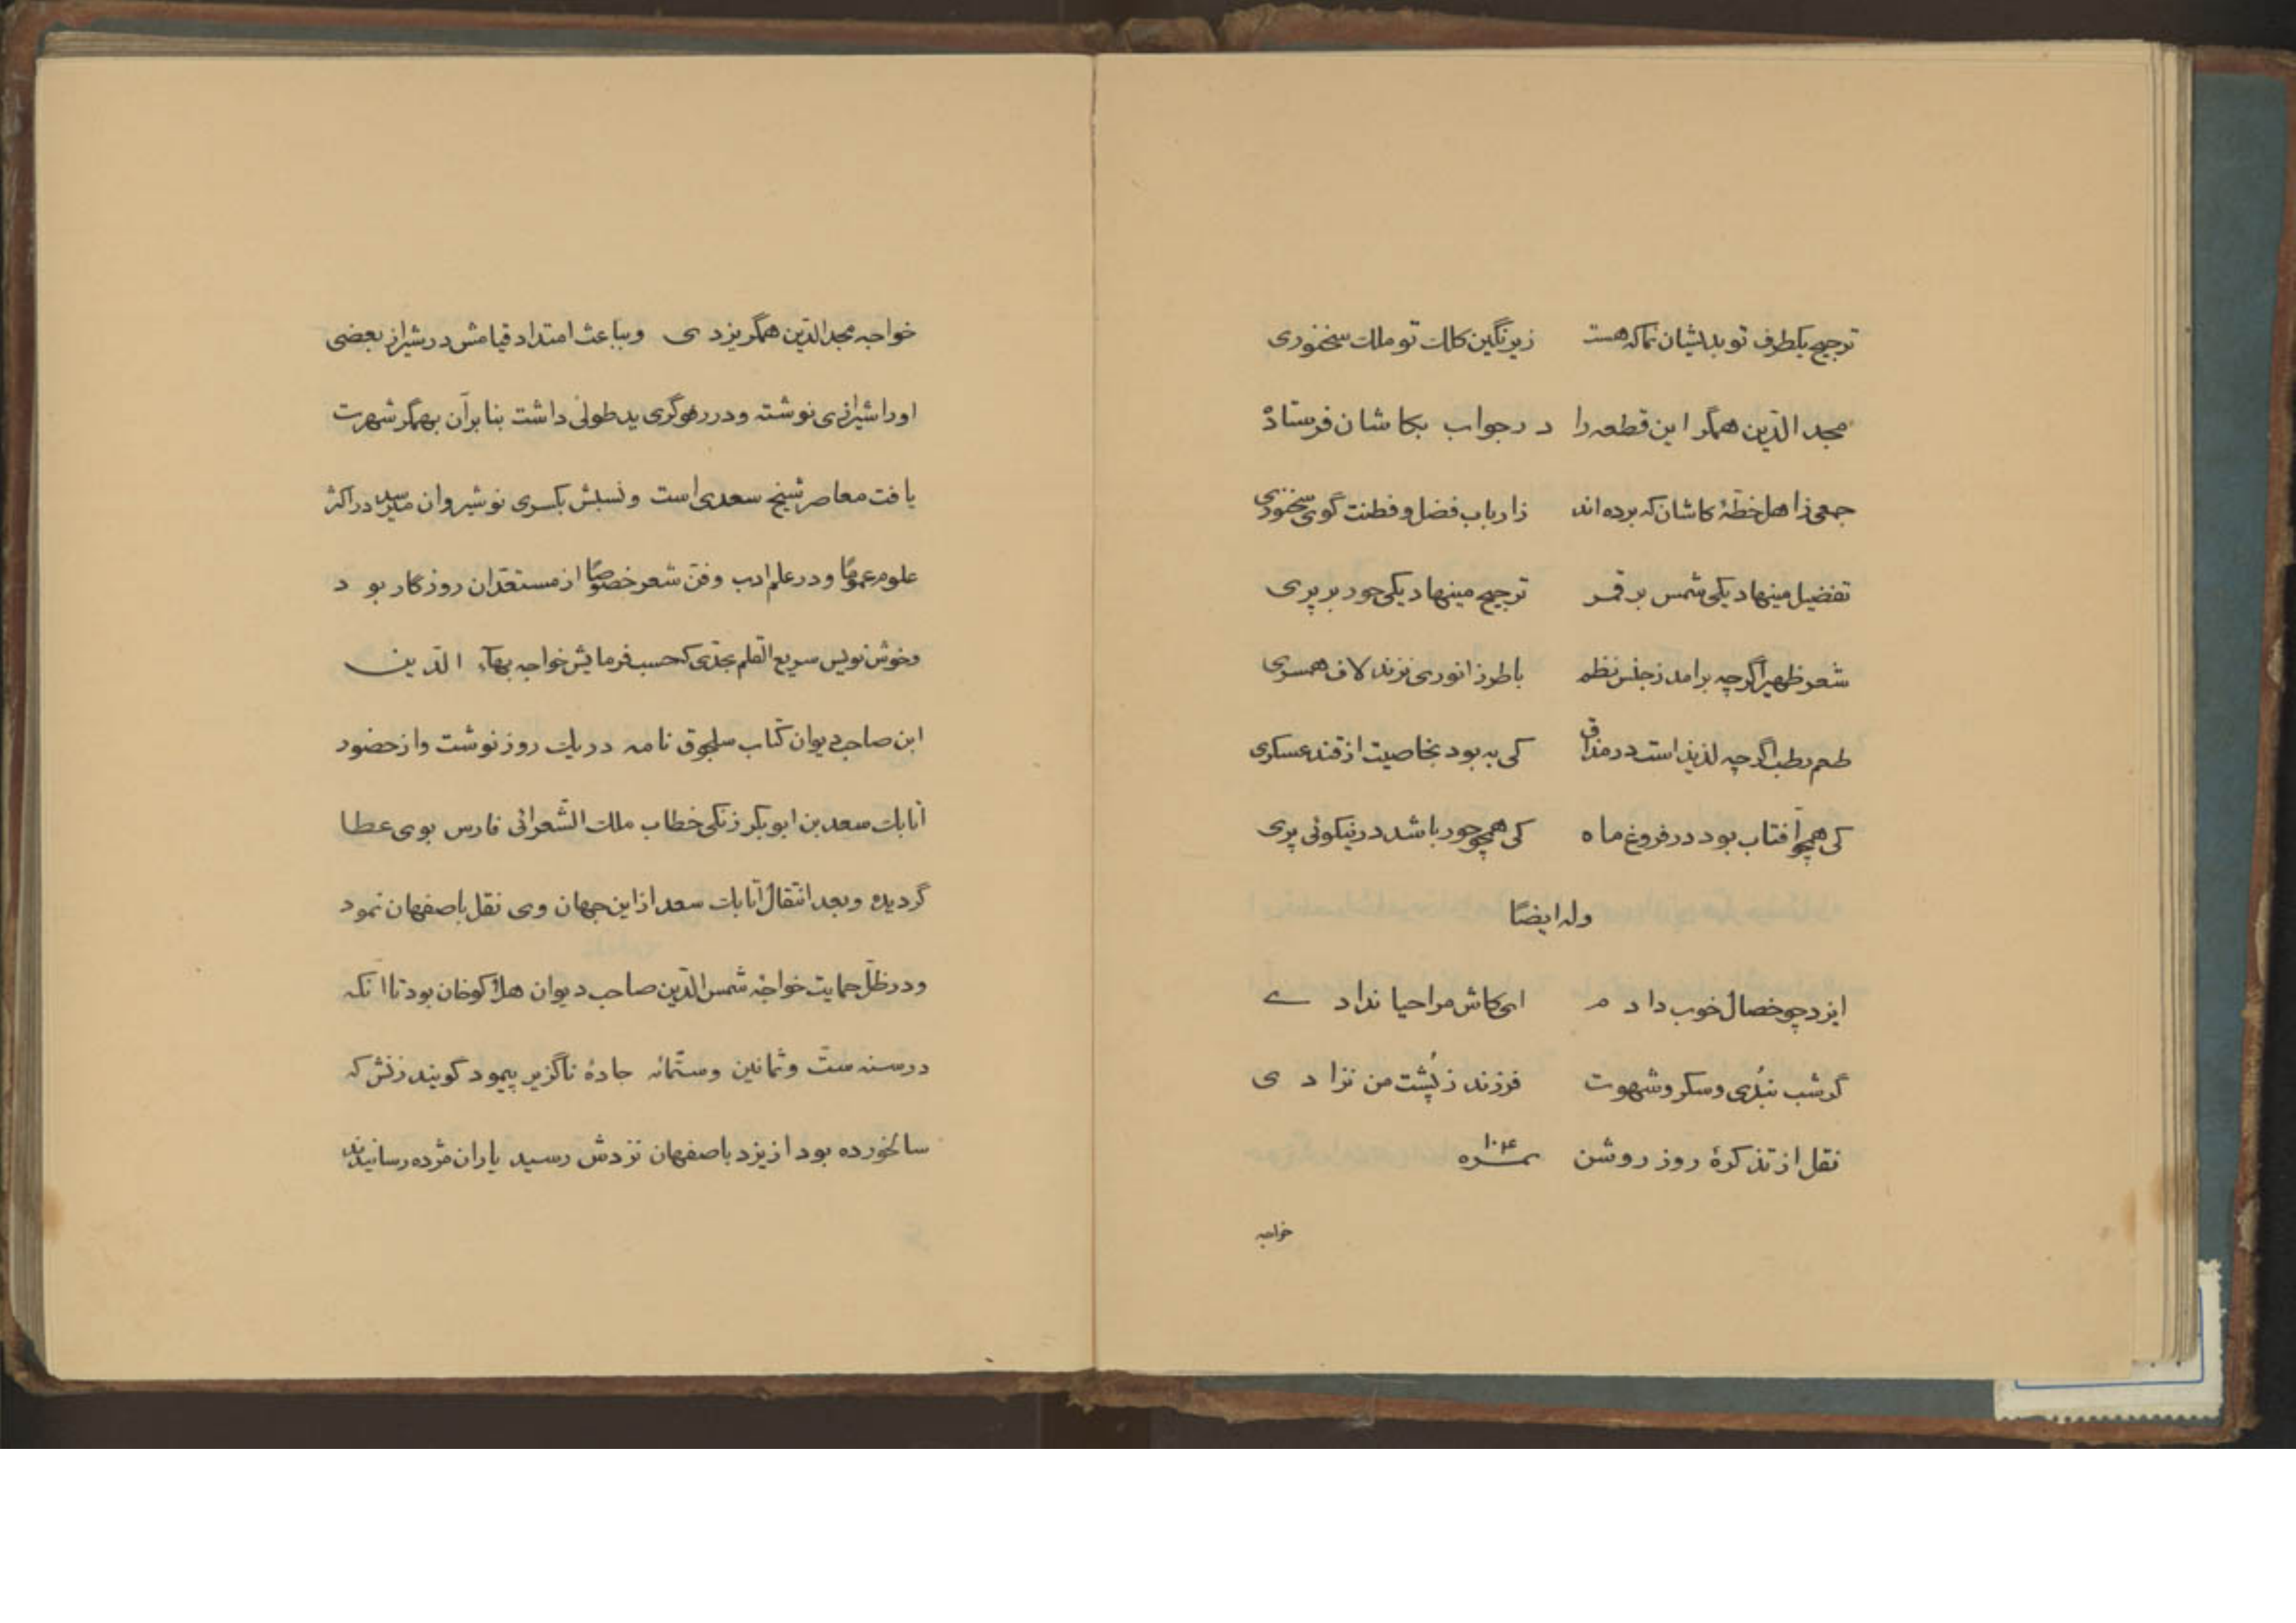 ترجیح یکطرف تو بدیشان نما که هست زیر نگین کلک تو ملک سخنوری
مجد الدّین همگر این قطعه را در جواب بکاشان فرستادْ
جمعی ز اهل خطّهٔ کاشان که برده اند ز ارباب فضل و فطنت گوی سخنوری
تفضیل مینهاد یکی شمس بر قمر ترجیح مینهاد یکی حور بر پری
شعر ظهیر اگرچه برامد ز جنس نظم با طرز انوری نزند لاف همسری
طعم رطب اگرچه لذیذ است در مذاق کی به بود بخاصیت از قند عسکری
کی همچو آفتاب بود در فروغ ماه کی همچو حور باشد در نیکوئی پری
وله ایضًا
ایزد چو خصال خوب دادم ای کاش مرا حیا ندادے
گر شب نبُدی و سکر و شهوت فرزند ز پُشت من نزادی
نقل از تذکرهٔ روز روشن نمره ۱۰۴
خواجه
خواجه مجد الدّین همگر یزدی و بباعث امتداد قیامش در شیراز بعضی
او را شیرازی نوشته و در رفوگری ید طولی داشت بنا بر آن بهمگر شهرت
یافت معاصر شیخ سعدی است و نسبش بکسری نوشیروان میرسد در اکثر
علوم عمومًا و در علم ادب و فنّ شعر خصوصًا از مستعدّان روزگار بود
و خوش نویس سریع القلم بحدّی که حسب فرمایش خواجه بهآء الدّین
ابن صاحب دیوان کتاب سلجوق نامه در یک روز نوشت و از حضور
اتابک سعد بن ابوبکر زنکی خطاب ملک الشّعرائی فارس بوی عطا
گردیده و بعد انتقال اتابک سعد از این جهان وی نقل باصفهان نمود
و در ظلّ حمایت خواجه شمس الدّین صاحب دیوان هلاکوخان بود تا انکه
در سنه ستّ و ثمانین و ستّمائه جادهٔ ناگزیر پیمود گویند زنش که
سالخورده بود از یزد باصفهان نزدش رسید یاران مژده رسانیدند